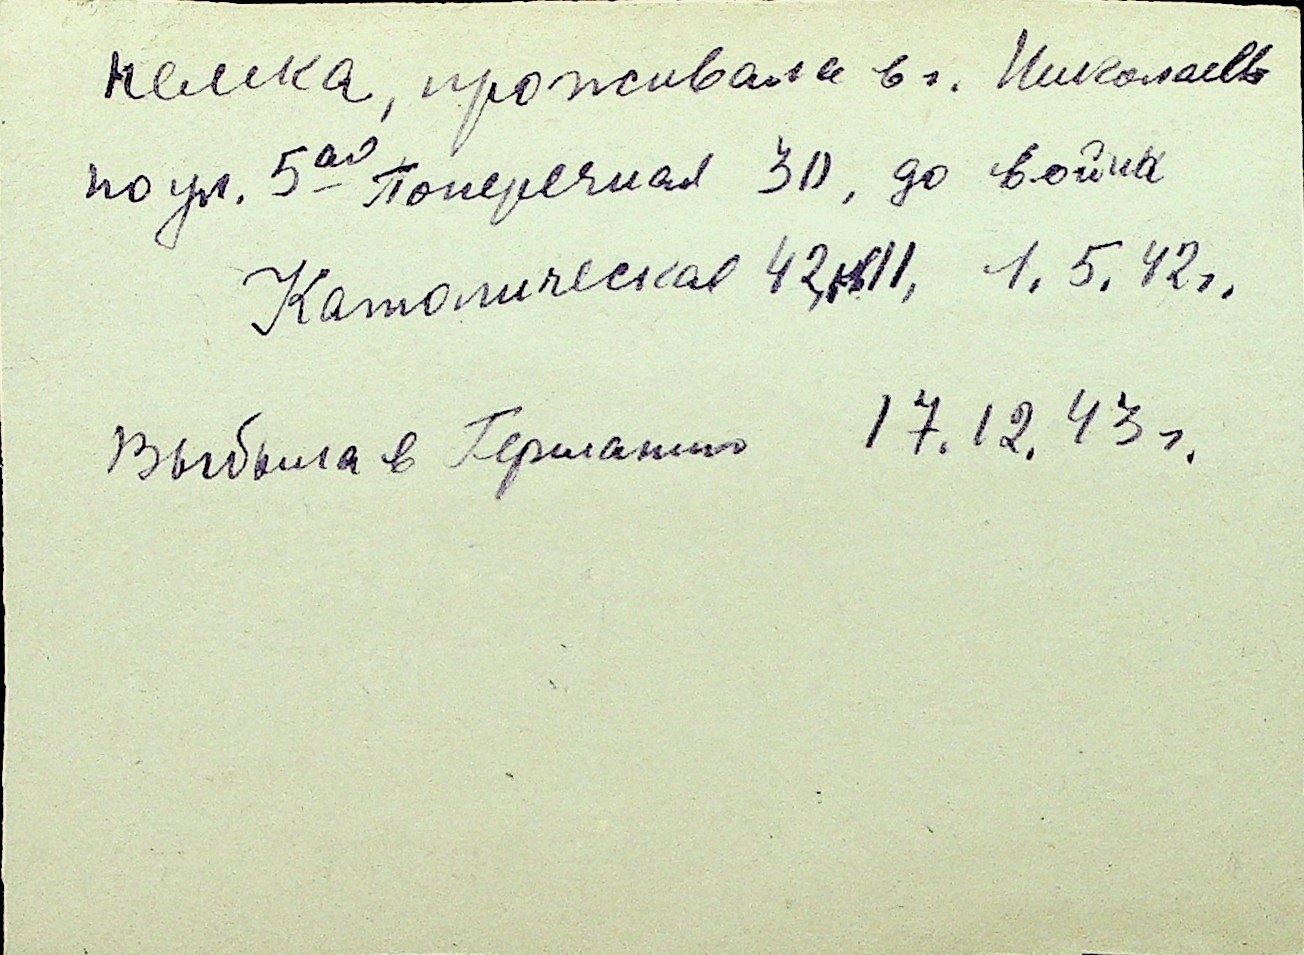 немка, проживала в г. Николаеве
по ул. 5ая Поперечная 30, до война
Католическая 42, кв 11, 1. 5. 42 г.
Выбыла в Германию 17. 12. 43 г.